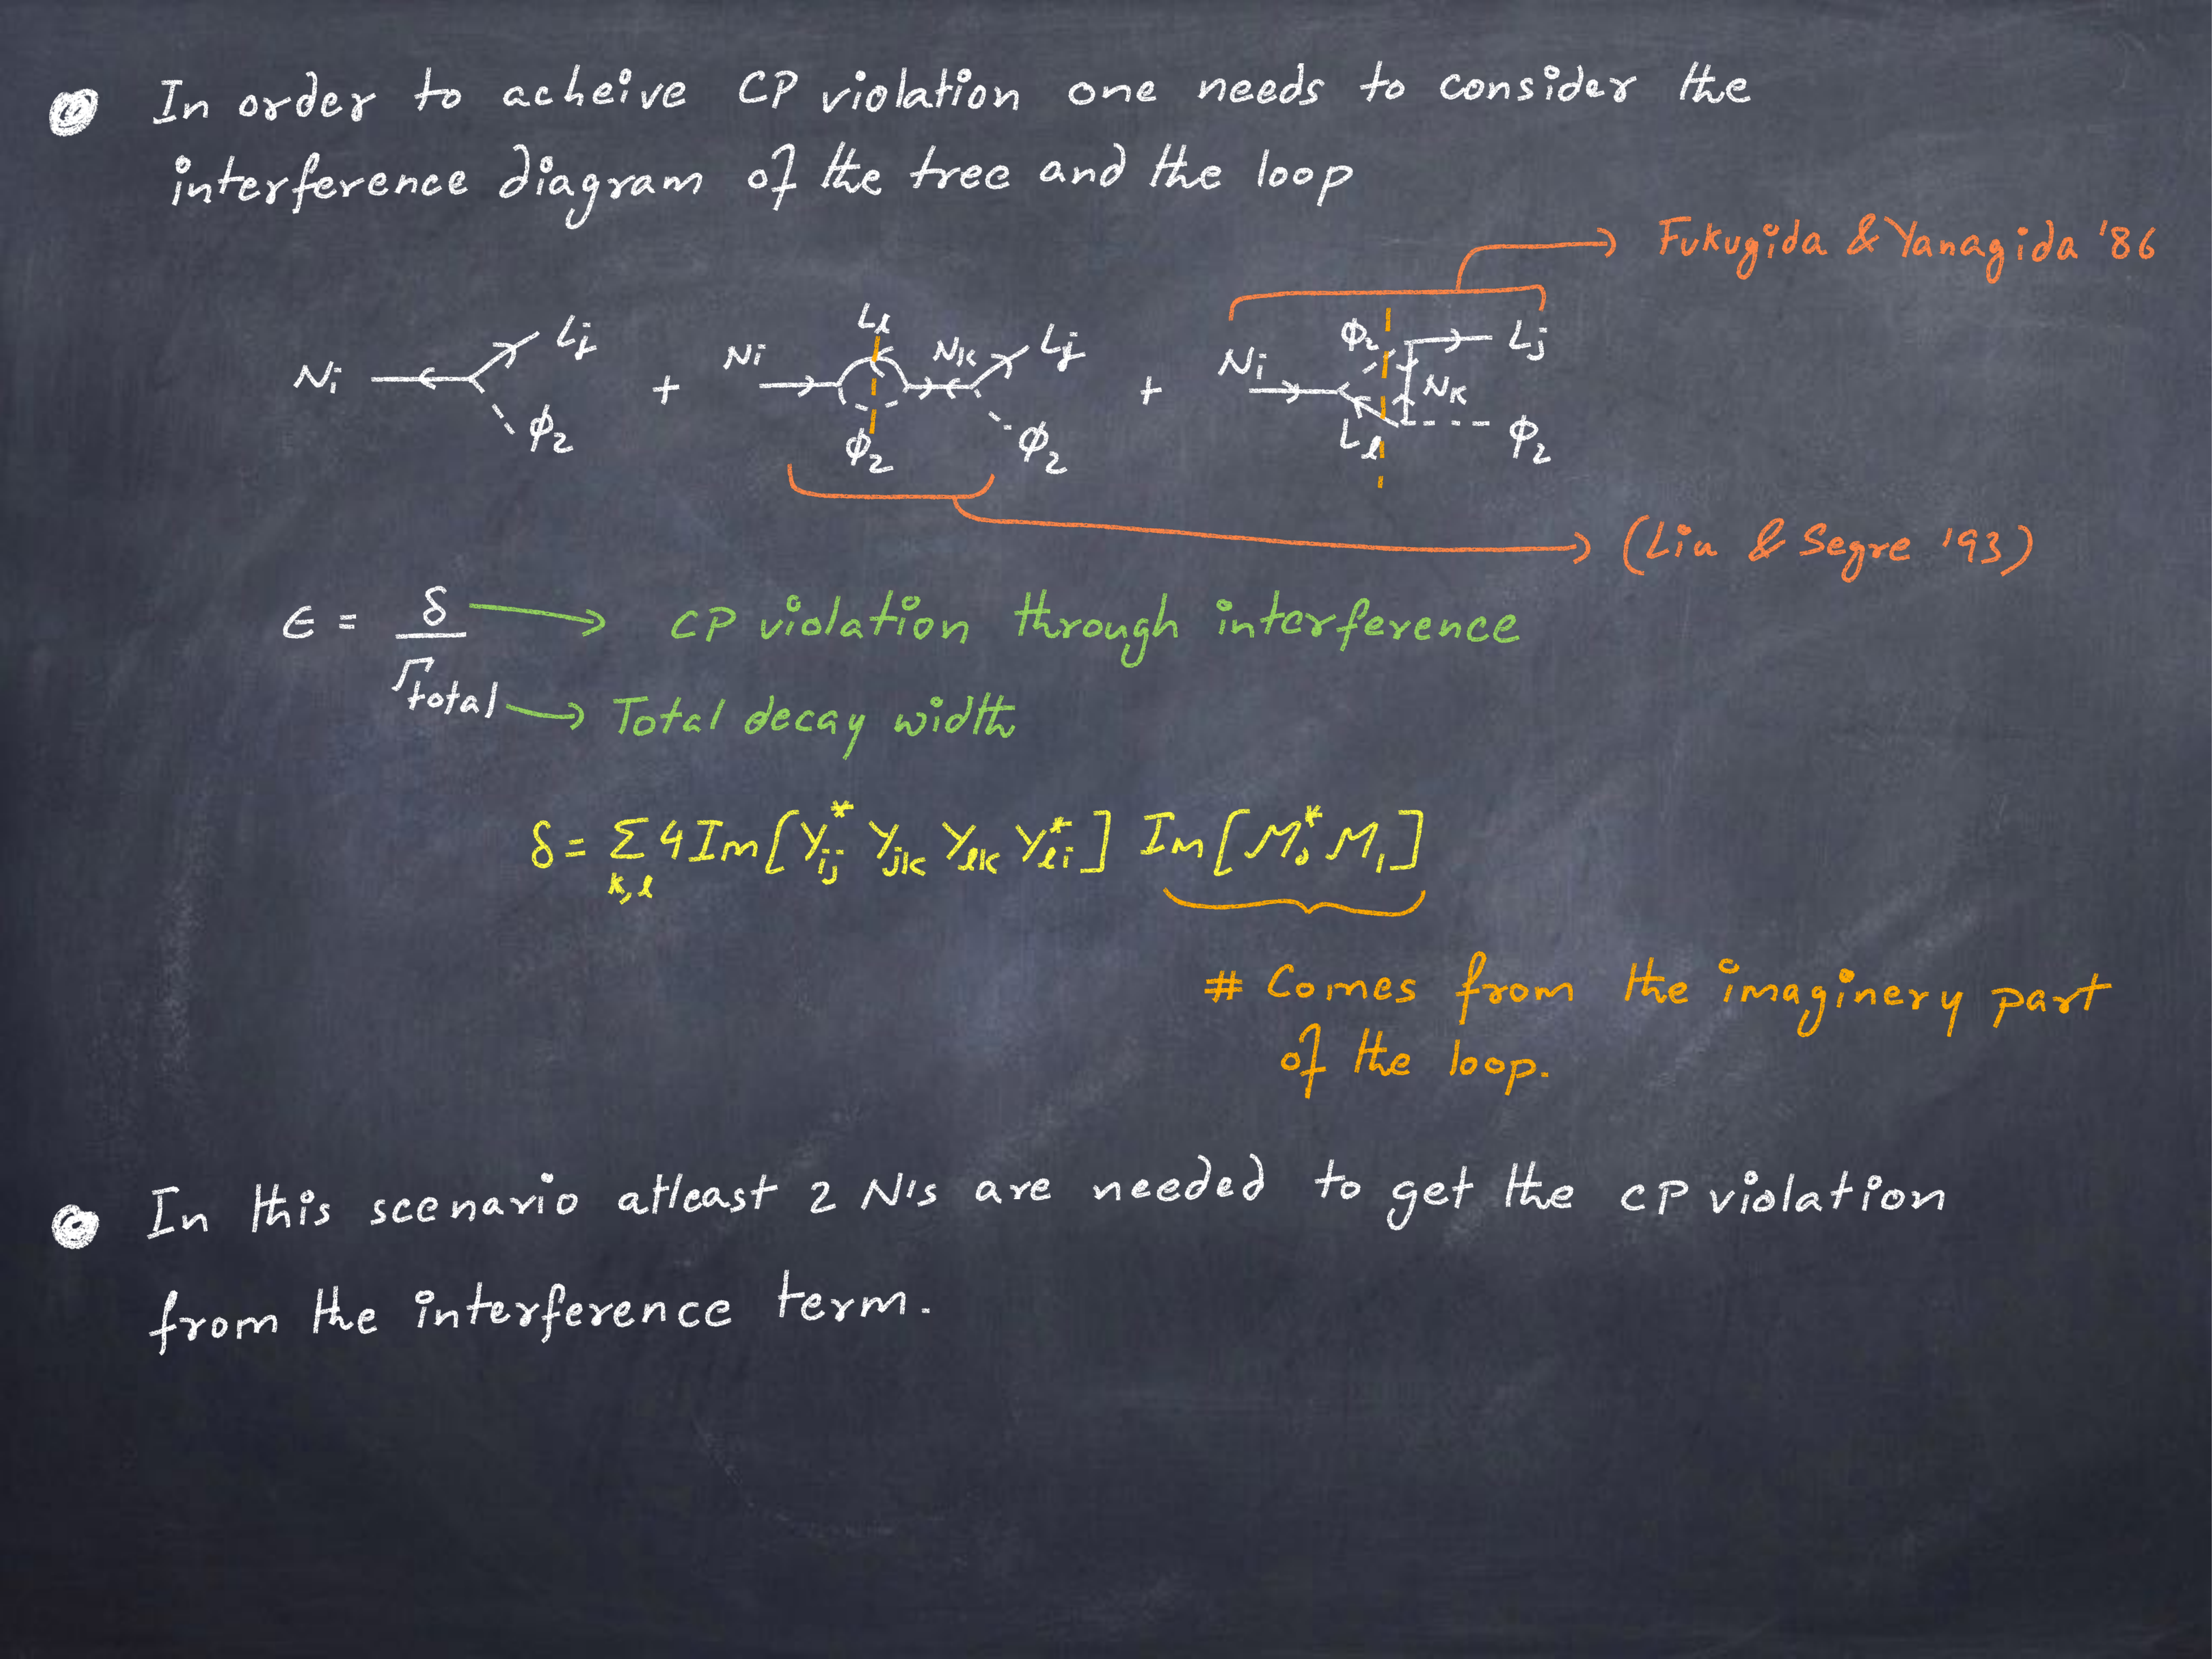 In order to acheive CP violation one needs to consider the
interference diagram of the tree and the loop
Fukugida & Yanagida '86
N_i L_j φ_2 + N_i L_l φ_2 N_k L_j φ_2 + N_i φ_2 L_l N_k L_j φ_2
(Liu & Segre '93)
ε = δ / Γ_total
→ CP violation through interference
→ Total decay width
δ = Σ_{k,l} 4 Im[Y_ij^* Y_jk Y_lk Y_li^*] Im[M_0^* M_1]
# Comes from the imaginery part
of the loop.
In this scenario atleast 2 N's are needed to get the CP violation
from the interference term.